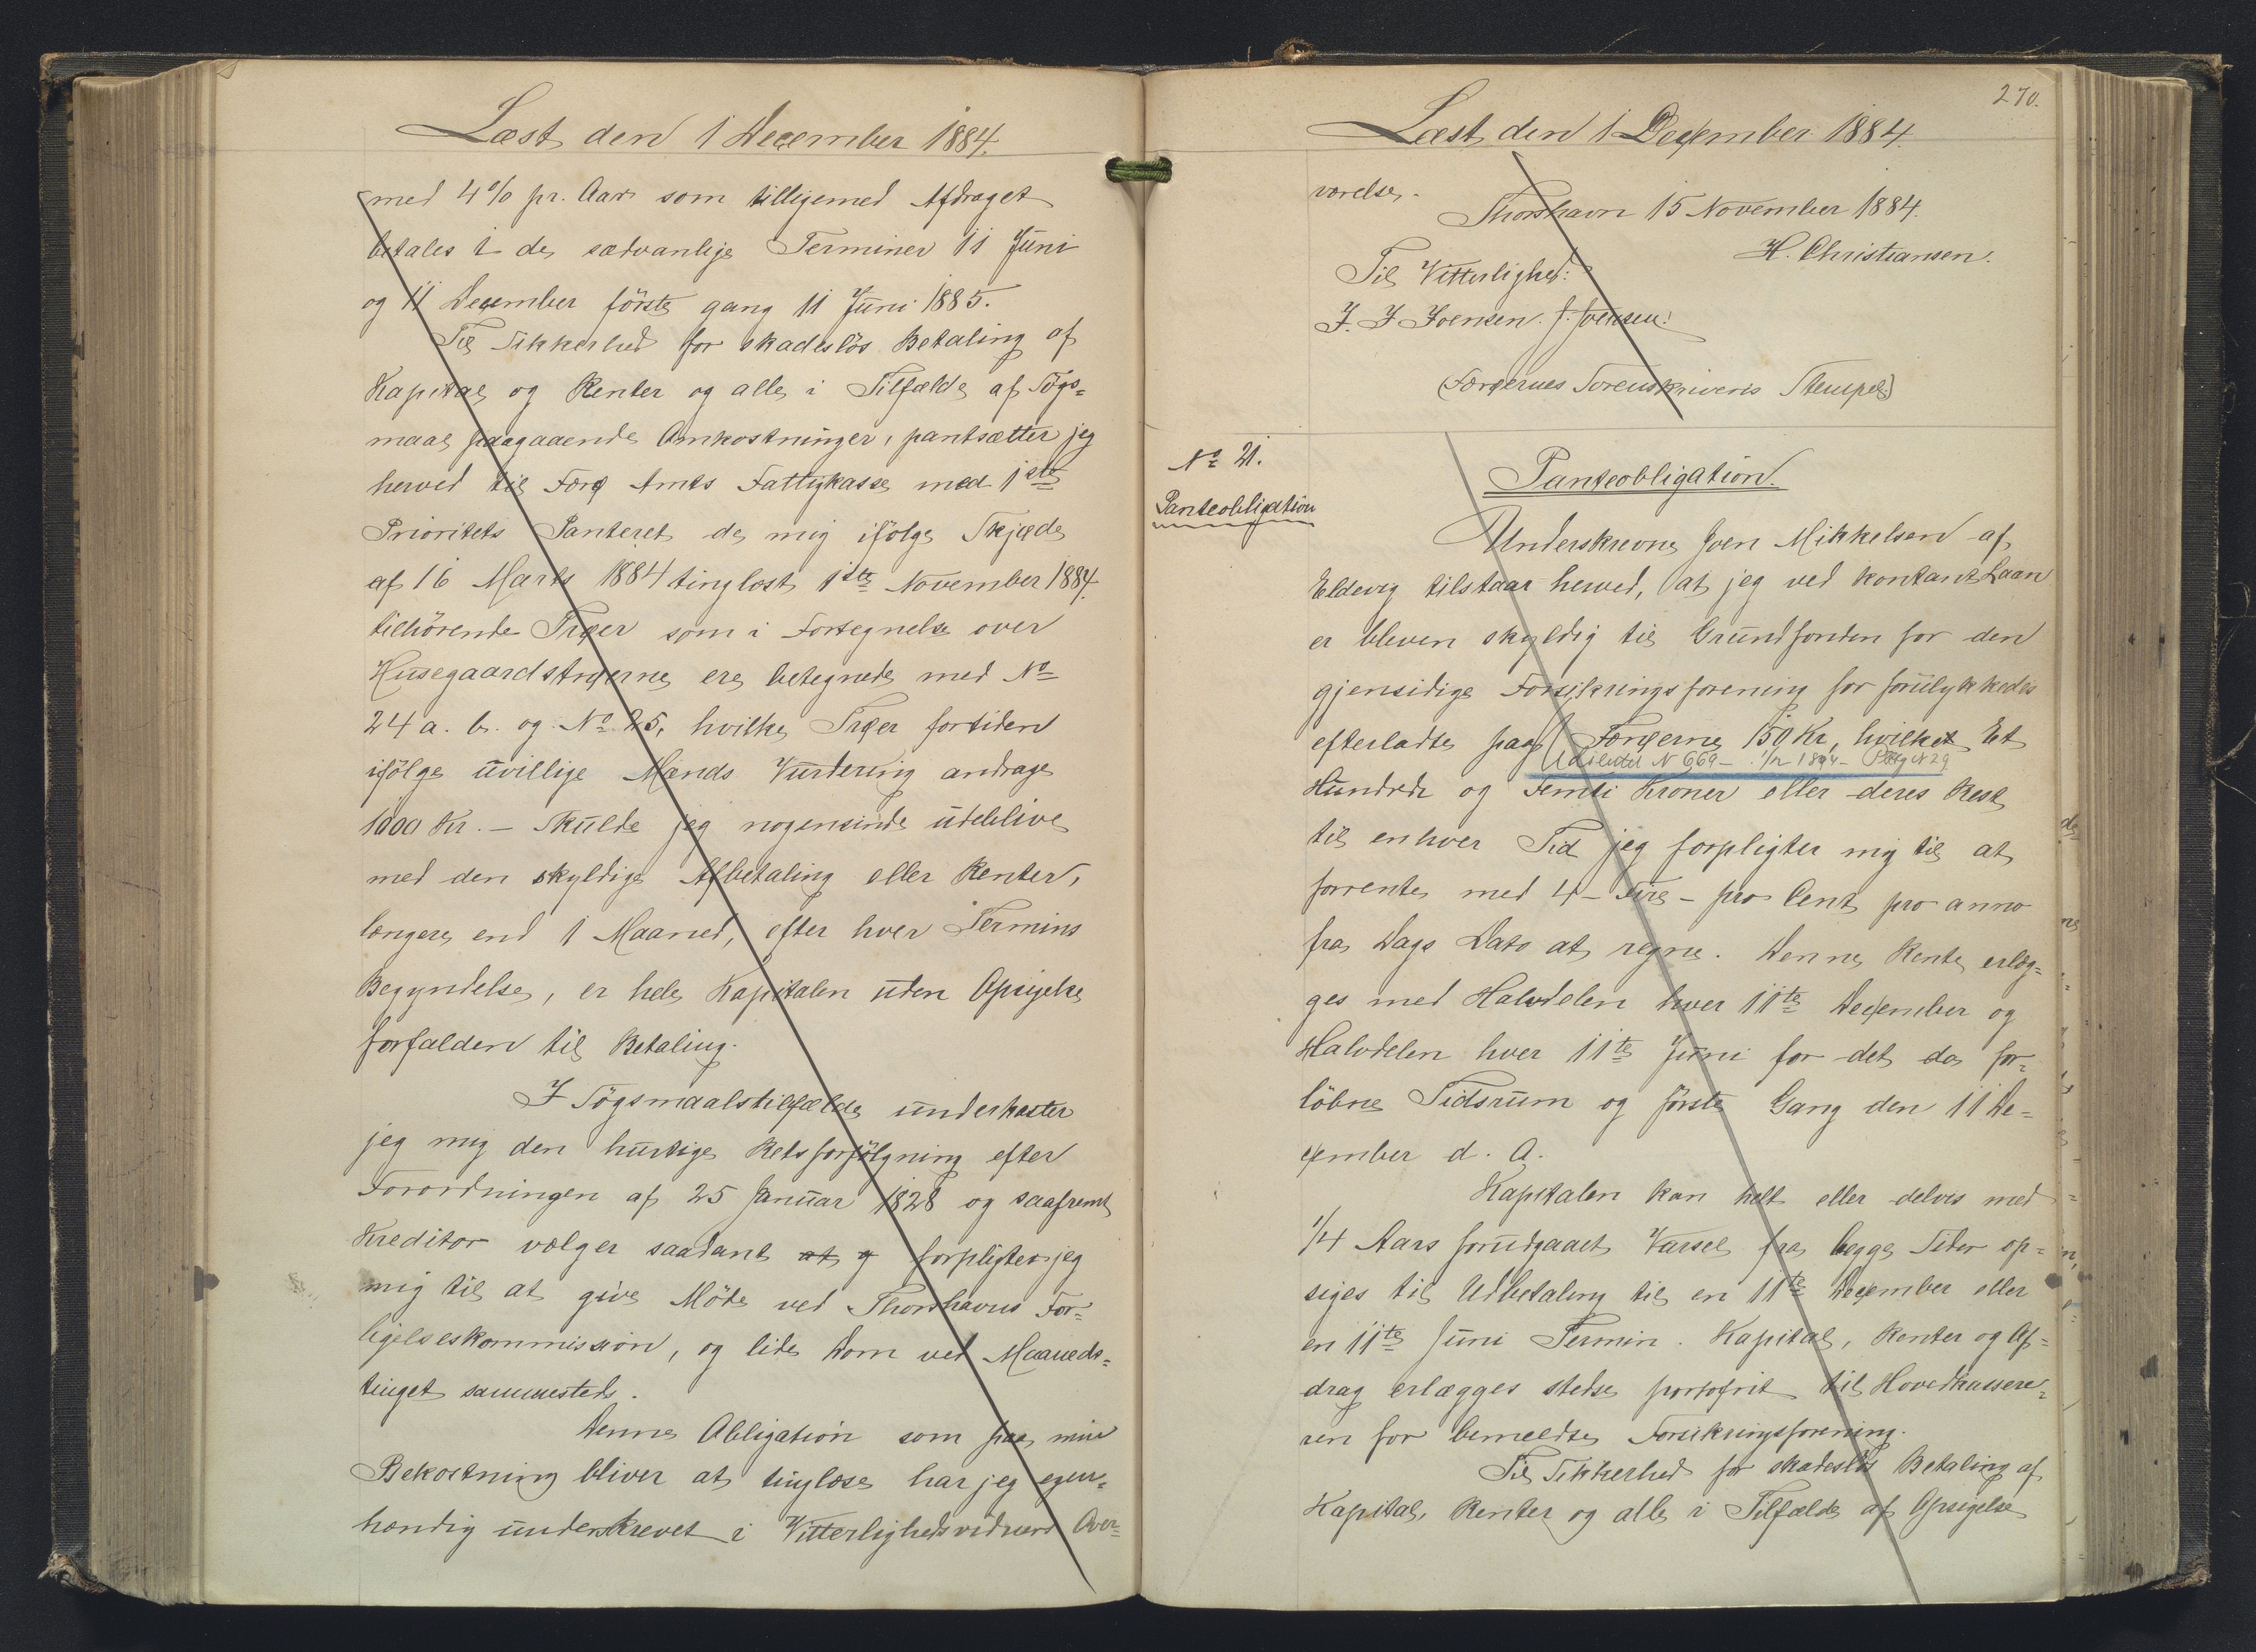 Læst den 1 December 1884.
med 4% pr. Aar som tilligemed Afdraget
betales i de sædvanlige Terminer 11 Juni
og 11 December første gang 11 Juni 1885.
Til Sikkerhed for skadesløs Betaling af
Kapital og Renter og alle i Tilfælde af Søgs=
maal paagaaende Omkostninger, pantsætter jeg
herved til Færø Amts Fattigkasse med 1ste
Prioritets Panteret de mig ifølge Skjøde
af 16 Marts 1884 tinglæst 1ste November 1884
tilhørende Træer som i Fortegnelse over
Husegaardstræerne ere betegnede med No
24 a. b. og No 25, hvilke Træer fortiden
ifølge uvillige Mænds Vurdering andrage
1000 Kr. – Skulde jeg nogensinde udeblive
med den skyldige Afbetaling eller Renter,
længere end 1 Maaned, efter hver Termins
Begyndelse, er hele Kapitalen uden Opsigelse
forfalden til Betaling.
I Søgsmaalstilfælde underkaster
jeg mig den hurtige Retsforfølgning efter
Forordningen af 25 Januar 1828 og saafremt
Kreditor vælger saadant at g forpligter jeg
mig til at give Møde ved Thorshavns For=
ligelseskommission, og lide Dom ved Maaneds=
tinget sammesteds.
Denne Obligation som paa min
Bekostning bliver at tinglæse har jeg egen=
hændig underskrevet i Vitterlighedsvidners Over=
270.
Læst den 1 December 1884.
værelse.
Thorshavn 15 November 1884.
H. Christiansen.
Til Vitterlighed:
J. J Joensen. J. Joensen.
(Færøernes Sorenskriveris Stempel)
No 21.
Panteobligation
Panteobligation.
Underskrevne Joen Mikkelsen af
Eldevig tilstaar herved, at jeg ved kontant Laan
er bleven skyldig til Grundfonden for den
gjensidige Forsikringsforening for forulykkedes
efterladte paa Færøerne 150 Kr, hvilket Et
Udslettet N 669 – 1/12 1894 –
Hundrede og Femti Kroner eller deres Rest
til enhver Tid jeg forpligter mig til at
forrente med 4 – Fire – pro Cent pro anno
fra Dags Dato at regne. Denne Rente erlæg=
ges med Halvdelen hver 11te December og
Halvdelen hver 11te Juni for det da for=
løbne Tidsrum og første Gang den 11 De=
cember d. A.
Kapitalen kan helt eller delvis med
1/4 Aars forudgaaet Varsel fra begge Sider op=
siges til Udbetaling til en 11te December eller
en 11te Juni Termin. Kapital, Renter og Af=
drag erlægges stedse portofrit til Hovedkassere=
ren for bemeldte Forsikringsforening.
Til Sikkerhed for skadesløs Betaling af
Kapital, Renter og alle i Tilfælde af Opsigelse